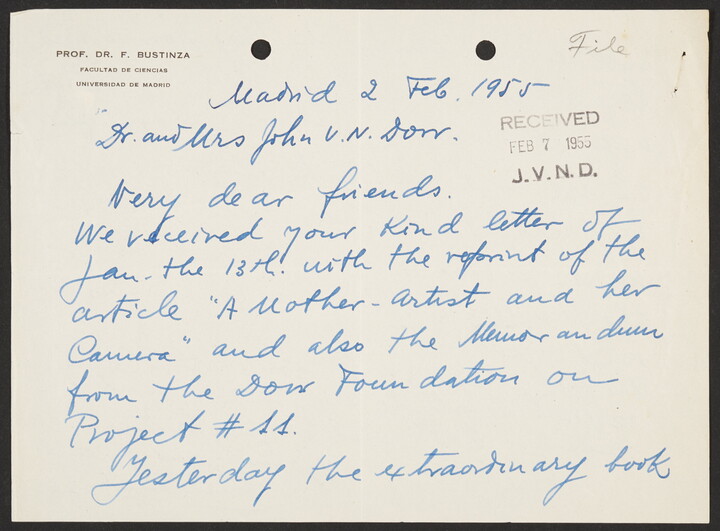 PROF. DR. F. BUSTINZA
FACULTAD DE CIENCIAS
UNIVERSIDAD DE MADRID
File
Madrid 2 Feb. 1955
Dr. and Mrs John V. N. Dorr.
RECEIVED
FEB 7 1955
J.V.N.D.
Very dear friends.
We received your kind letter of
Jan. the 13th. with the reprint of the
article "A Mother-artist and her
Camera" and also the Memorandum
from the Dorr Foundation on
Project # 11.
Yesterday the extraordinary book